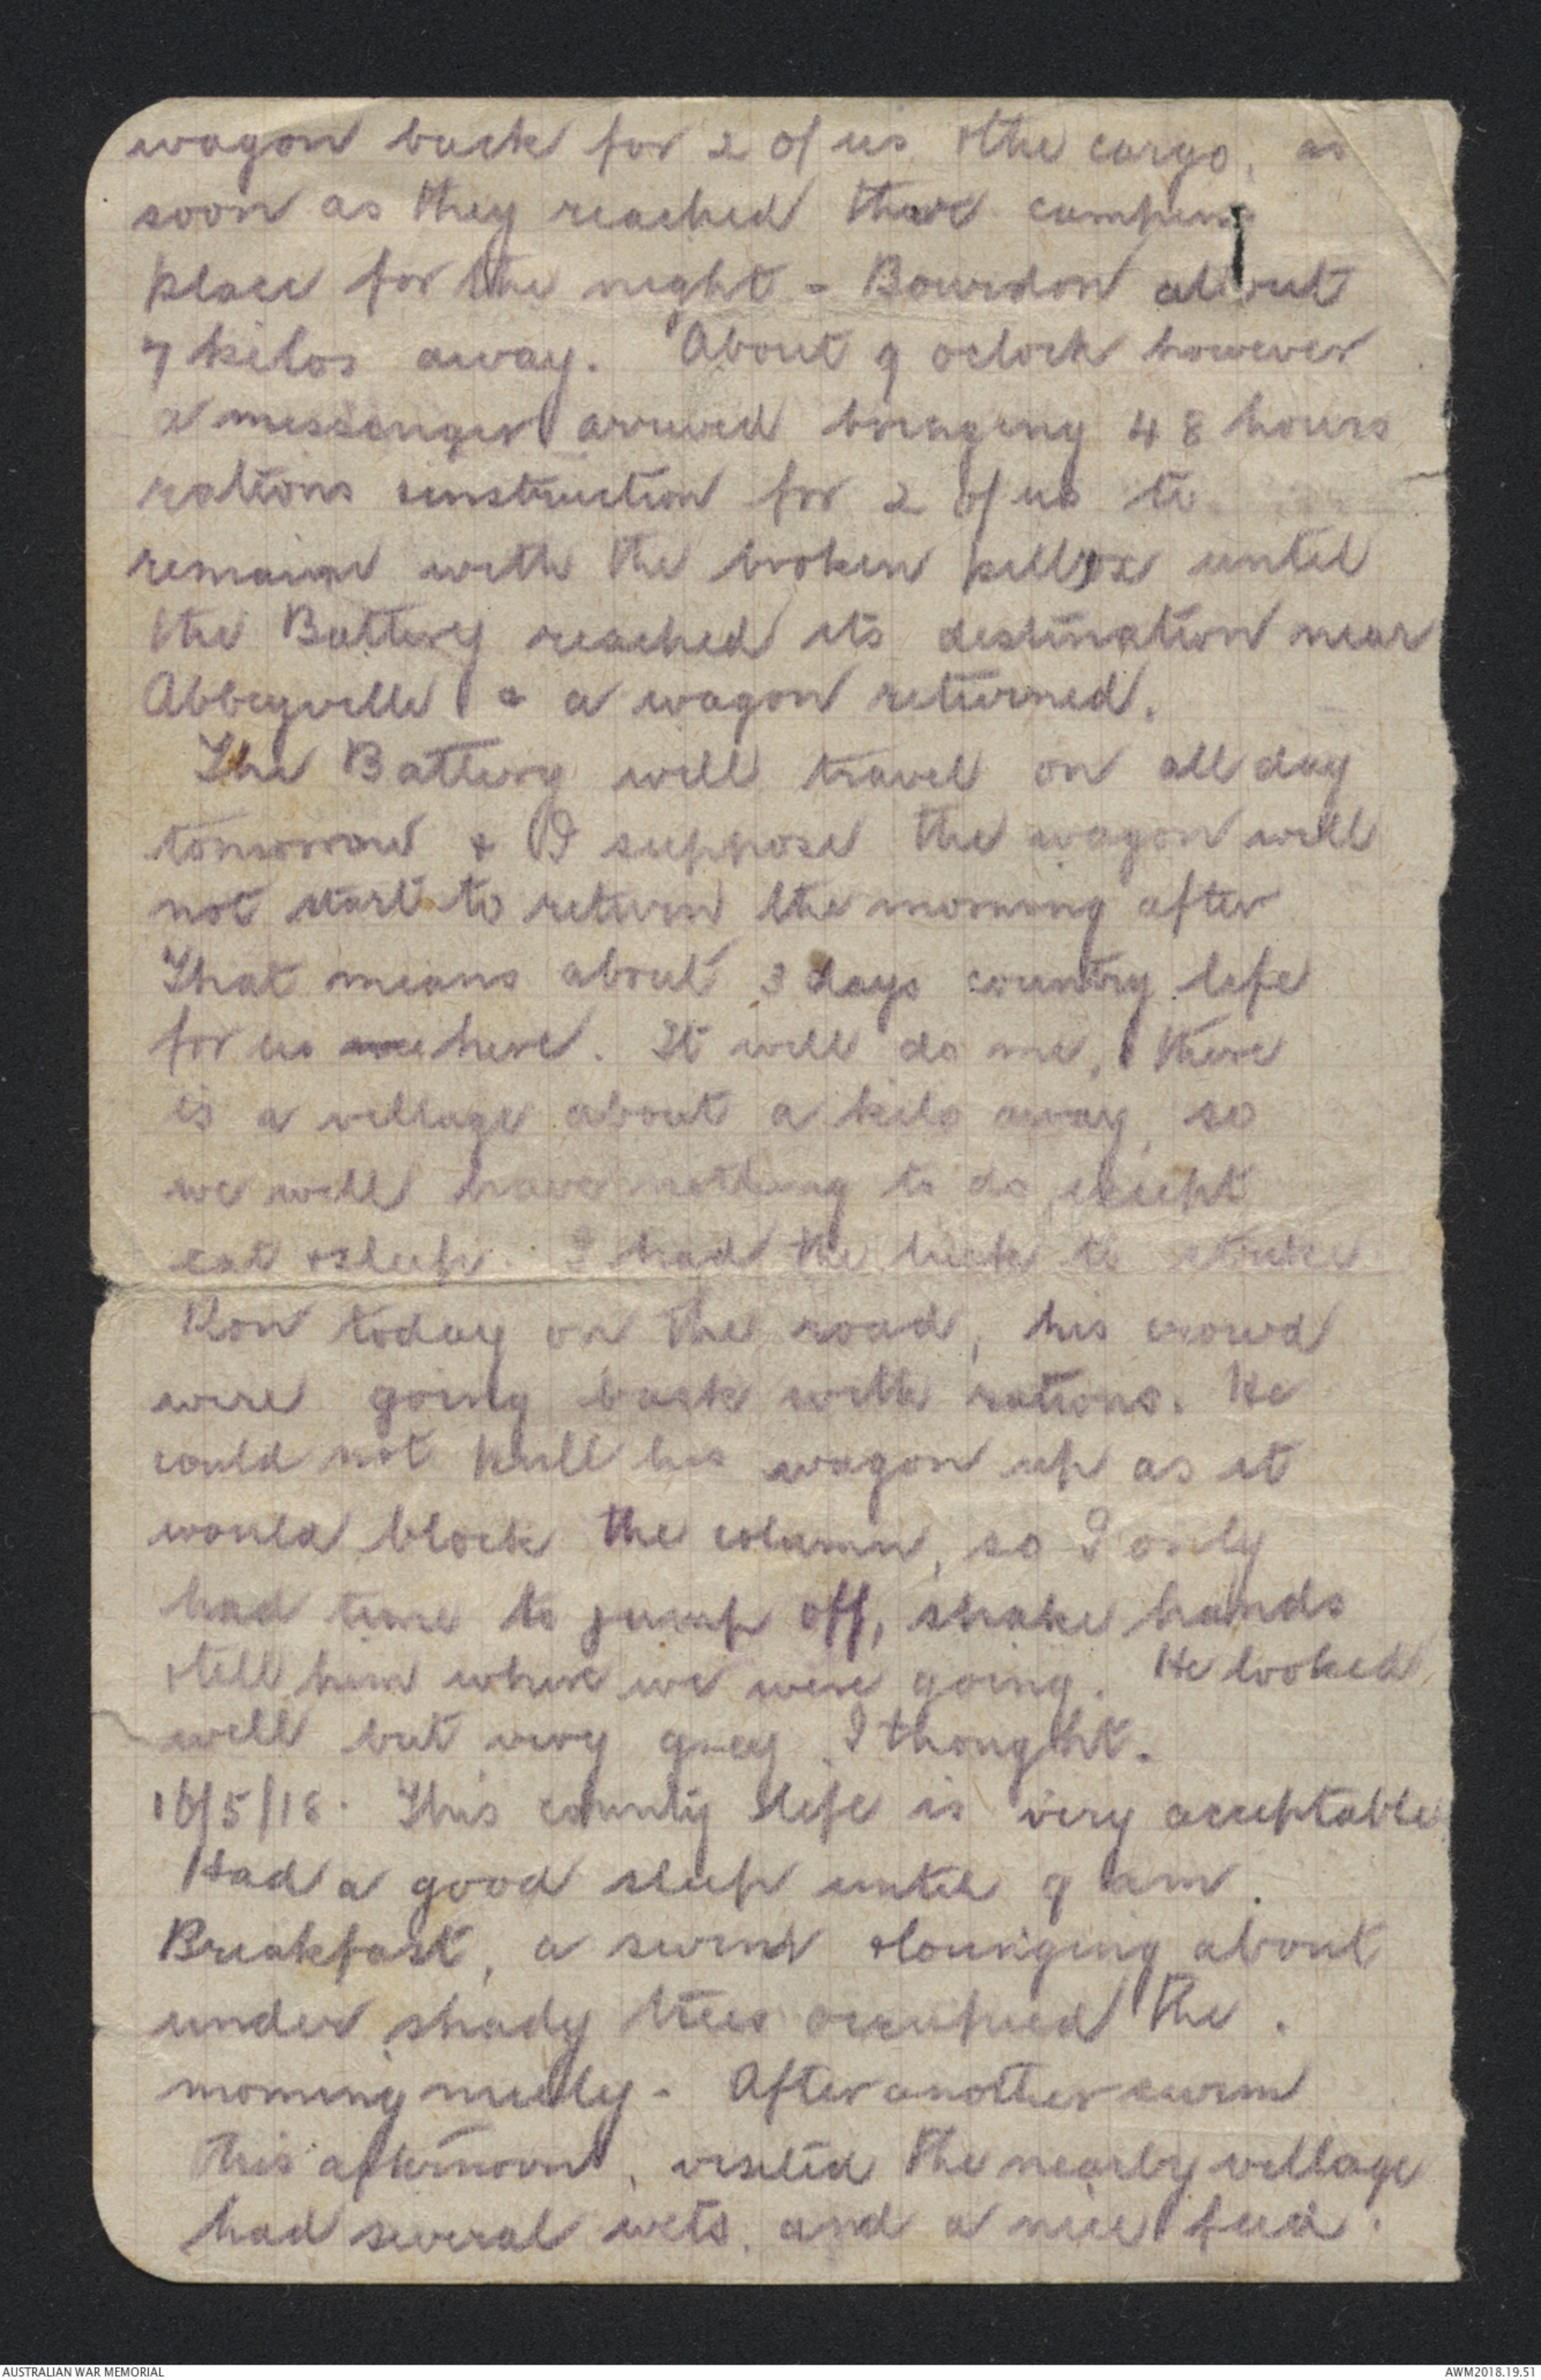 wagon back for 2 of us & the cargo, as
soon as they reached their camping
place for the night - Bourdon about
7 kilos away. About 9 oclock however
a messenger arrived bringing 48 hours
rations & instruction for 2 of us to
remain with the broken until
the Battery reached its destination near
Abbeyville & a wagon returned.
The Battery will travel on all day
tomorrow & I suppose the wagon will
not start to return the morning after
That means about 3 days country life
for us here. It will do me, there
is a village about a kilo away, so
we will have nothing to do except
eat & sleep. I had the luck to strike
Ron today on the road, his crowd
were going back with rations. He
could not pull his wagon up as it
would block the column, so I only
had time to jump off, shake hands
& tell him where we were going. He looked
well but very grey I thought.
16/5/18. This country life is very acceptable
Had a good sleep until 9 am.
Breakfast, a swim & lounging about
under shady trees occupied the
morning nicely - After another swim
this afternoon, visited the nearby village
had several wets, and a nice feed.
AUSTRALIAN WAR MEMORIAL
AWM2018.19.51